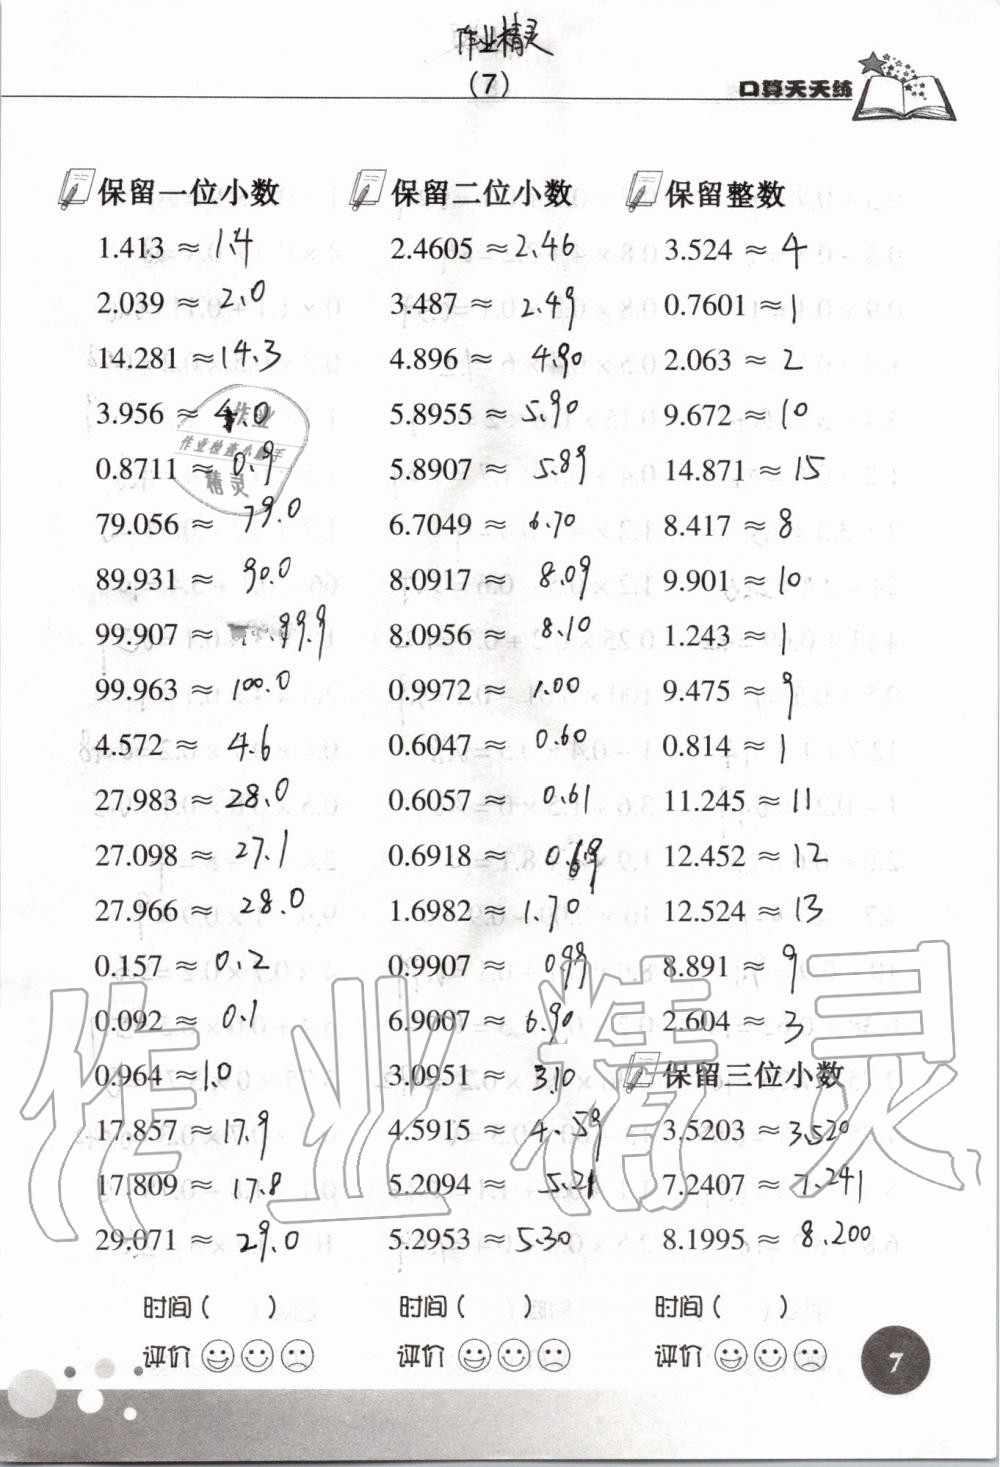 作业精灵
(7)
口算天天练
保留一位小数
1.413 ≈ 1.4
2.039 ≈ 2.0
14.281 ≈ 14.3
3.956 ≈ 4.0
0.8711 ≈ 0.9
79.056 ≈ 79.0
89.931 ≈ 90.0
99.907 ≈ 99.9
99.963 ≈ 100.0
4.572 ≈ 4.6
27.983 ≈ 28.0
27.098 ≈ 27.1
27.966 ≈ 28.0
0.157 ≈ 0.2
0.092 ≈ 0.1
0.964 ≈ 1.0
17.857 ≈ 17.9
17.809 ≈ 17.8
29.071 ≈ 29.0
时间( )
评价
保留二位小数
2.4605 ≈ 2.46
3.487 ≈ 2.49
4.896 ≈ 4.90
5.8955 ≈ 5.90
5.8907 ≈ 5.89
6.7049 ≈ 6.70
8.0917 ≈ 8.09
8.0956 ≈ 8.10
0.9972 ≈ 1.00
0.6047 ≈ 0.60
0.6057 ≈ 0.61
0.6918 ≈ 0.69
1.6982 ≈ 1.70
0.9907 ≈ 0.99
6.9007 ≈ 6.90
3.0951 ≈ 3.10
4.5915 ≈ 4.59
5.2094 ≈ 5.21
5.2953 ≈ 5.30
时间( )
评价
保留整数
3.524 ≈ 4
0.7601 ≈ 1
2.063 ≈ 2
9.672 ≈ 10
14.871 ≈ 15
8.417 ≈ 8
9.901 ≈ 10
1.243 ≈ 1
9.475 ≈ 9
0.814 ≈ 1
11.245 ≈ 11
12.452 ≈ 12
12.524 ≈ 13
8.891 ≈ 9
2.604 ≈ 3
保留三位小数
3.5203 ≈ 3.520
7.2407 ≈ 7.241
8.1995 ≈ 8.200
时间( )
评价
7
作业
作业检查小助手
精灵
作业精灵